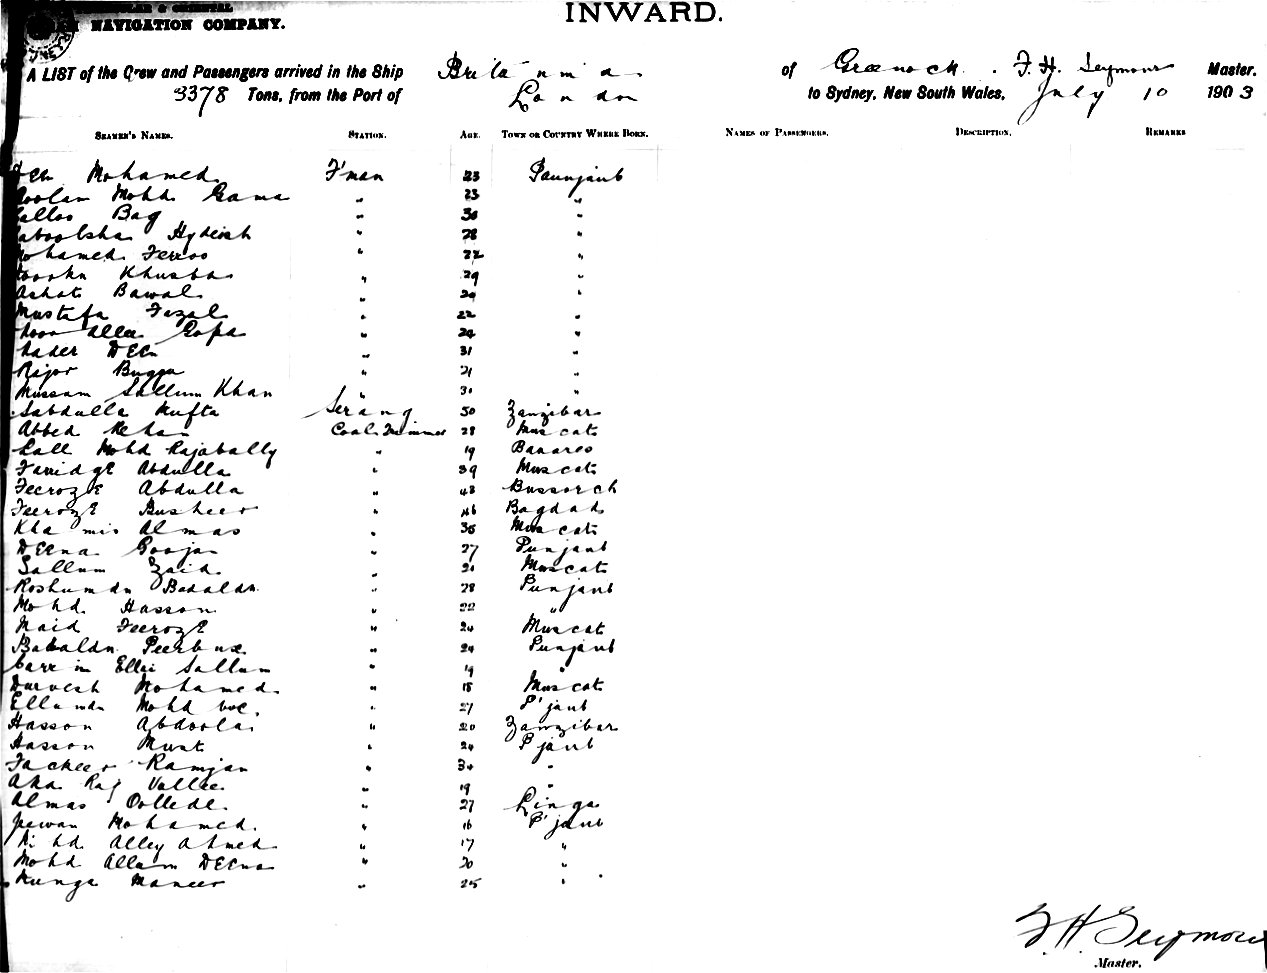 INWARD.
NAVIGATION COMPANY.
A LIST of the Crew and Passengers arrived in the Ship Britannia of Greenock. F. H. Seymour Master.
3378 Tons, from the Port of London to Sydney, New South Wales, July 10 1903
SEAMEN'S NAMES. STATION. AGE. TOWN OR COUNTRY WHERE BORN. NAMES OF PASSENGERS. DESCRIPTION. REMARKS
Mohamed F'man 23 Paunjaub
Mohd Gama " 23 "
Bag " 30 "
Hyderah " 28 "
Mohamed Feroo " 22 "
Khusba " 29 "
Bawal " 20 "
Mustafa Fazal " 22 "
Allee Gopa " 24 "
Deen " 31 "
Bugga " 21 "
Sallum Khan " 30 "
Sabdulla Mufta Serang 50 Zanzibar
Abbed Khan Coal Trimmer 28 Muscat
Lall Mohd Rajabally " 19 Banares
Farridge Abdulla " 39 Muscat
Feeroze Abdulla " 43 Bussorah
Feeroze Busheer " 46 Bagdad
Khamis Almas " 35 Muscat
Deena Goojar " 27 Punjaub
Sallum Zaid " 21 Muscat
Roshumdn Badaldn " 28 Punjaub
Mohd Hasson " 22 "
Naid Feeroze " 24 Muscat
Peerbux " 24 Punjaub
Ellai Sallum " 19 "
Durvesh Mohamed " 18 Muscat
Ellumdn Mohd " 27 P'jaub
Hasson Abdoola " 20 Zanzibar
Hasson Must " 24 P'jaub
Fackeer Ramjan " 34 "
Vallee " 19 "
Almas " 27 Linga
Jewan Mohamed " 16 P'jaub
Alley Ahmed " 17 "
Mohd Allam Deena " 20 "
Kunga Maneer " 25 "
F. H. Seymour
Master.